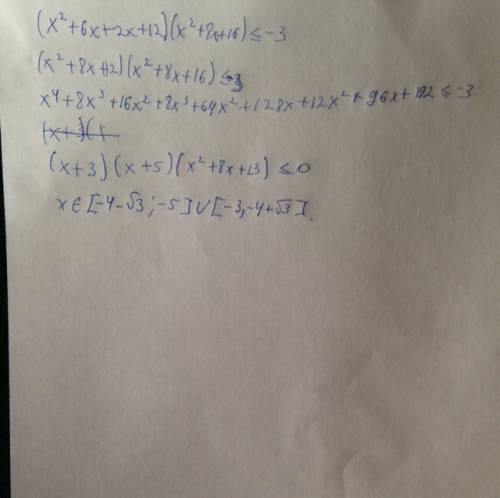 (x²+6x+2x+12)(x²+8x+16)≤-3
(x²+8x+12)(x²+8x+16)≤-3
x⁴+8x³+16x²+8x³+64x²+128x+12x²+96x+192≤-3
(x+3)(
(x+3)(x+5)(x²+8x+13)≤0
x∈[-4-√3;-5]∪[-3,-4+√3].